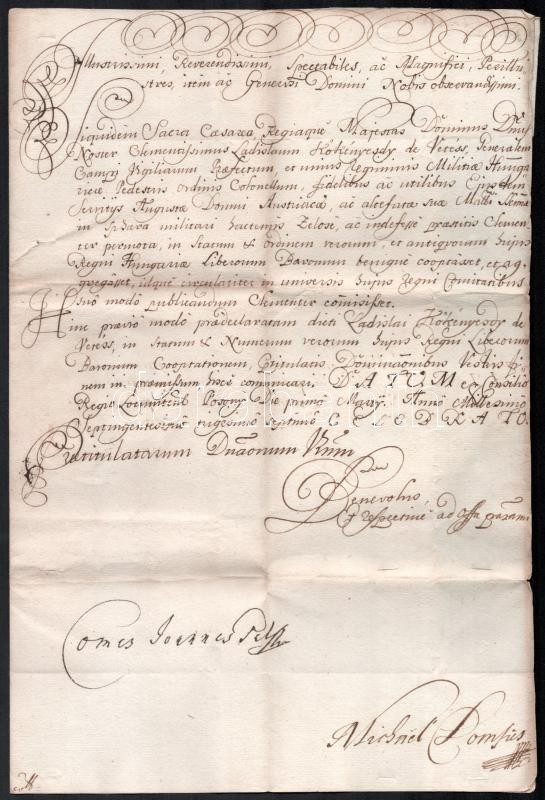 Illustrissimi, Reverendissimi, Spectabiles, ac Magnifici, Perillu-
stres, item ac Generosi Domini Nobis observandissimi.
Siquidem Sacra Cæsarea, Regiaque Majestas Dominus Dnus
Noster Clementissimus Ladislaum Kökenyesdy de Vetess, Generalem
Campi Vigiliarum Præfectum, et unius Regiminis Militiæ Hunga
ricæ Pedestris Ordinis Colonellum, fidelibus ac utilibus Ejusdem
Servitys Augustæ Domui Austriacæ, ac altefatæ suæ Matti
in Sphæra militari hactenus Zelose, ac indefesse præstitis Clemen-
ter permota, in Statum & Ordinem verorum, et antiquorum hujus
Regni Hungariæ Liberorum Baronum benigne cooptasset, et ag
gregasset, idque circulariter in universis hujus Regni Comitatibus
suo modo publicandum Clementer commisisset.
Hinc prævio modo prædeclaratam dicti Ladislai Kökényesdy de
Vetess, in Statum & Numerum verorum hujus Regni Liberorum
Baronum Cooptationem, Titulatis Dominationibus Vestris fi-
nem in præmissum hisce communicari. DATUM e Consilio
Regio Posony Die prima Marty. Anno Millesimo
Septingentesimo trigesimo septimo CELEDRATO.
Prætitulatarum Dnaonum Vrum
Benevolus,
& respective ad offa
Comes Joannes
Michael